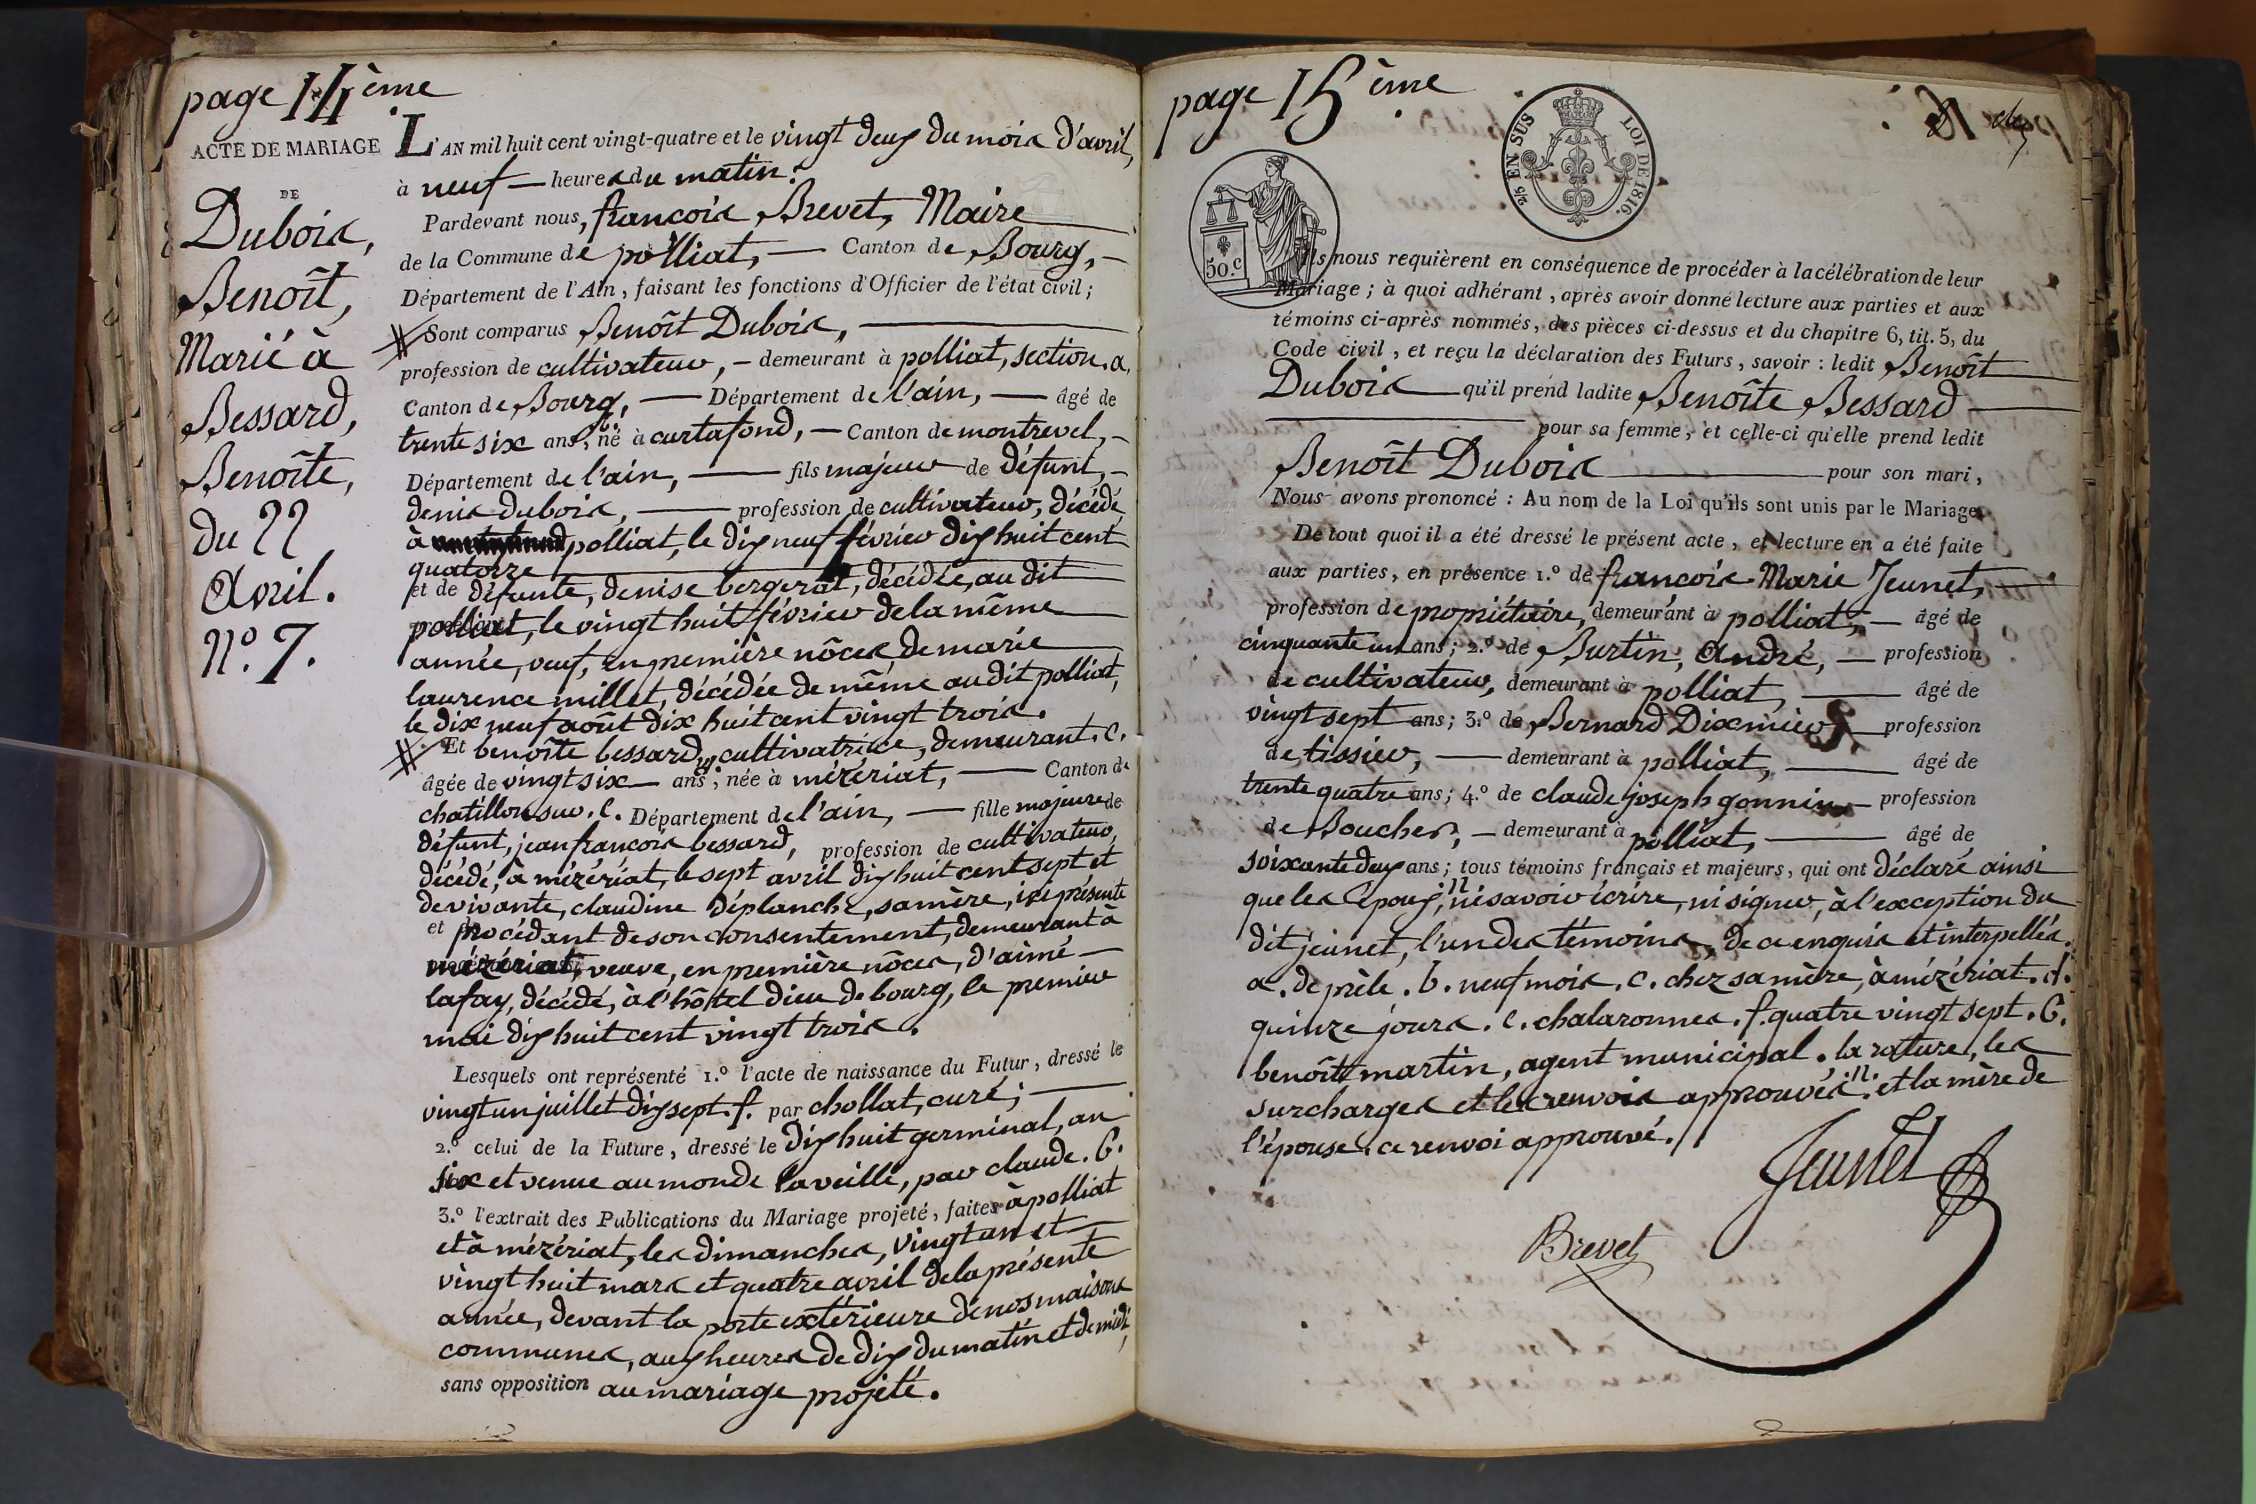 page 14ème
ACTE DE MARIAGE
DE
Dubois,
Benoît,
Marié à
Bessard,
Benoîte,
du 22
Avril.
N.º 7.
L'AN mil huit cent vingt-quatre et le vingt deux du mois d'avril,
à neuf — heures du matin.
Pardevant nous, françois Brevet, Maire
de la Commune de polliat, — Canton de Bourg, —
Département de l'Ain, faisant les fonctions d'Officier de l'état civil;
Sont comparus Benoît Dubois,
profession de cultivateur, — demeurant à polliat, section. a.
Canton de Bourg, — Département de l'ain, — âgé de
trente six ans, b. né à curtafond, — Canton de montrevel, —
Département de l'ain, — fils majeur de défunt, —
denis dubois, — profession de cultivateur, décédé
à polliat, le dix neuf février dix huit cent
quatorze
et de défunte, denise bergerat, décédée, au dit
polliat, le vingt huit février de la même
année, veuf, en première nôces, de marie
laurence millet, décédée de même au dit polliat,
le dix neuf août dix huit cent vingt trois.
Et benoîte bessard, cultivatrice, demeurant. c.
âgée de vingt six — ans; d. née à mézériat, — Canton de
chatillon sur. e. Département de l'ain, — fille majeure de
défunt, jean françois bessard, profession de cultivateur,
décédé, à mézériat, le sept avril dix huit cent sept et
de vivante, claudine déplanche, sa mère, ici présente
et procédant de son consentement, demeurant à
mézériat, veuve, en première nôces, d'aimé —
lafay, décédé, à l'hôtel dieu de bourg, le premier
mai dix huit cent vingt trois.
Lesquels ont représenté 1.º l'acte de naissance du Futur, dressé le
vingt un juillet dix sept. f. par chollat, curé; —
2.º celui de la Future, dressé le dix huit germinal, an
six et venue au monde la veille, par claude. G.
3.º l'extrait des Publications du Mariage projeté, faites à polliat
et à mézériat, les dimanches, vingt un et —
vingt huit mars et quatre avril de la présente
année, devant la porte extérieure de nos maisons
communes, aux heures de dix du matin et de midi,
sans opposition au mariage projeté.
page 15ème
2/5 EN SUS LOI DE 1816.
50.c
Ils nous requièrent en conséquence de procéder à la célébration de leur
Mariage; à quoi adhérant, après avoir donné lecture aux parties et aux
témoins ci-après nommés, des pièces ci-dessus et du chapitre 6, tit. 5, du
Code civil, et reçu la déclaration des Futurs, savoir: ledit Benoît
Dubois — qu'il prend ladite Benoîte Bessard —
— pour sa femme, et celle-ci qu'elle prend ledit
Benoît Dubois — pour son mari,
Nous avons prononcé: Au nom de la Loi qu'ils sont unis par le Mariage.
De tout quoi il a été dressé le présent acte, et lecture en a été faite
aux parties, en présence 1.º de françois Marie Jeunet, —
profession de propriétaire, demeurant à polliat, — âgé de
cinquante un ans; 2.º de Burtin, André, — profession
de cultivateur, demeurant à polliat, — âgé de
vingt sept ans; 3.º de Bernard Dixmier, — profession
de tissier, — demeurant à polliat, — âgé de
trente quatre ans; 4.º de claude joseph gonnin, — profession
de Boucher, — demeurant à polliat, — âgé de
soixante deux ans; tous témoins français et majeurs, qui ont déclaré ainsi
que les époux, n ne savoir écrire, ni signer, à l'exception du
dit jeunet, l'un des témoins, de ce enquis et interpellés.
a. de prèle. b. neuf mois. c. chez sa mère, à mézériat. d.
quinze jours. e. chalaronnes. f. quatre vingt sept. G.
benoît martin, agent municipal. la rature, les
surcharges et les renvois approuvés. n. et la mère de
l'épouse. ce renvoi approuvé.
Jeunet
Brevet